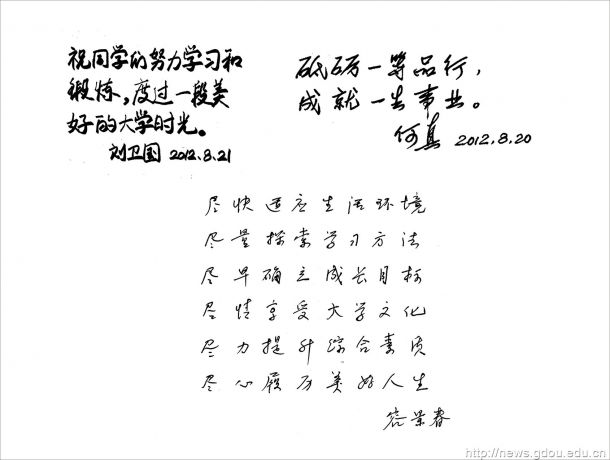 祝同学们努力学习和
锻炼，度过一段美
好的大学时光。
刘卫国 2012.8.21
砥砺一等品行，
成就一生事业。
何真 2012.8.20
尽快适应生活环境
尽量探索学习方法
尽早确立成长目标
尽情享受大学文化
尽力提升综合素质
尽心履历美好人生
景春
http://news.gdou.edu.cn